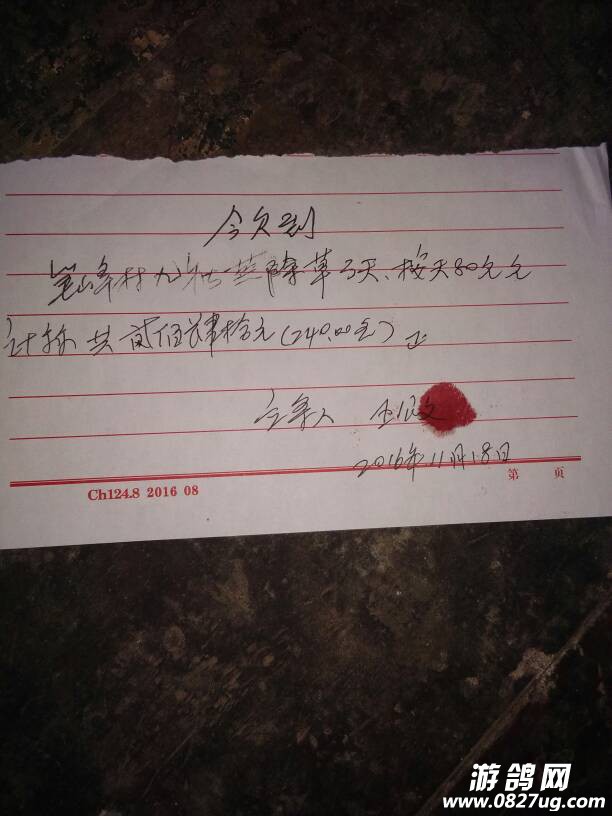 今欠到
笔峰村九社 除草3天、按天80元
计算 共贰佰肆拾元(240.00元)正
立条人 文
2016年11月18日
第 页
Ch124.8 2016 08
游鸽网
www.0827ug.com